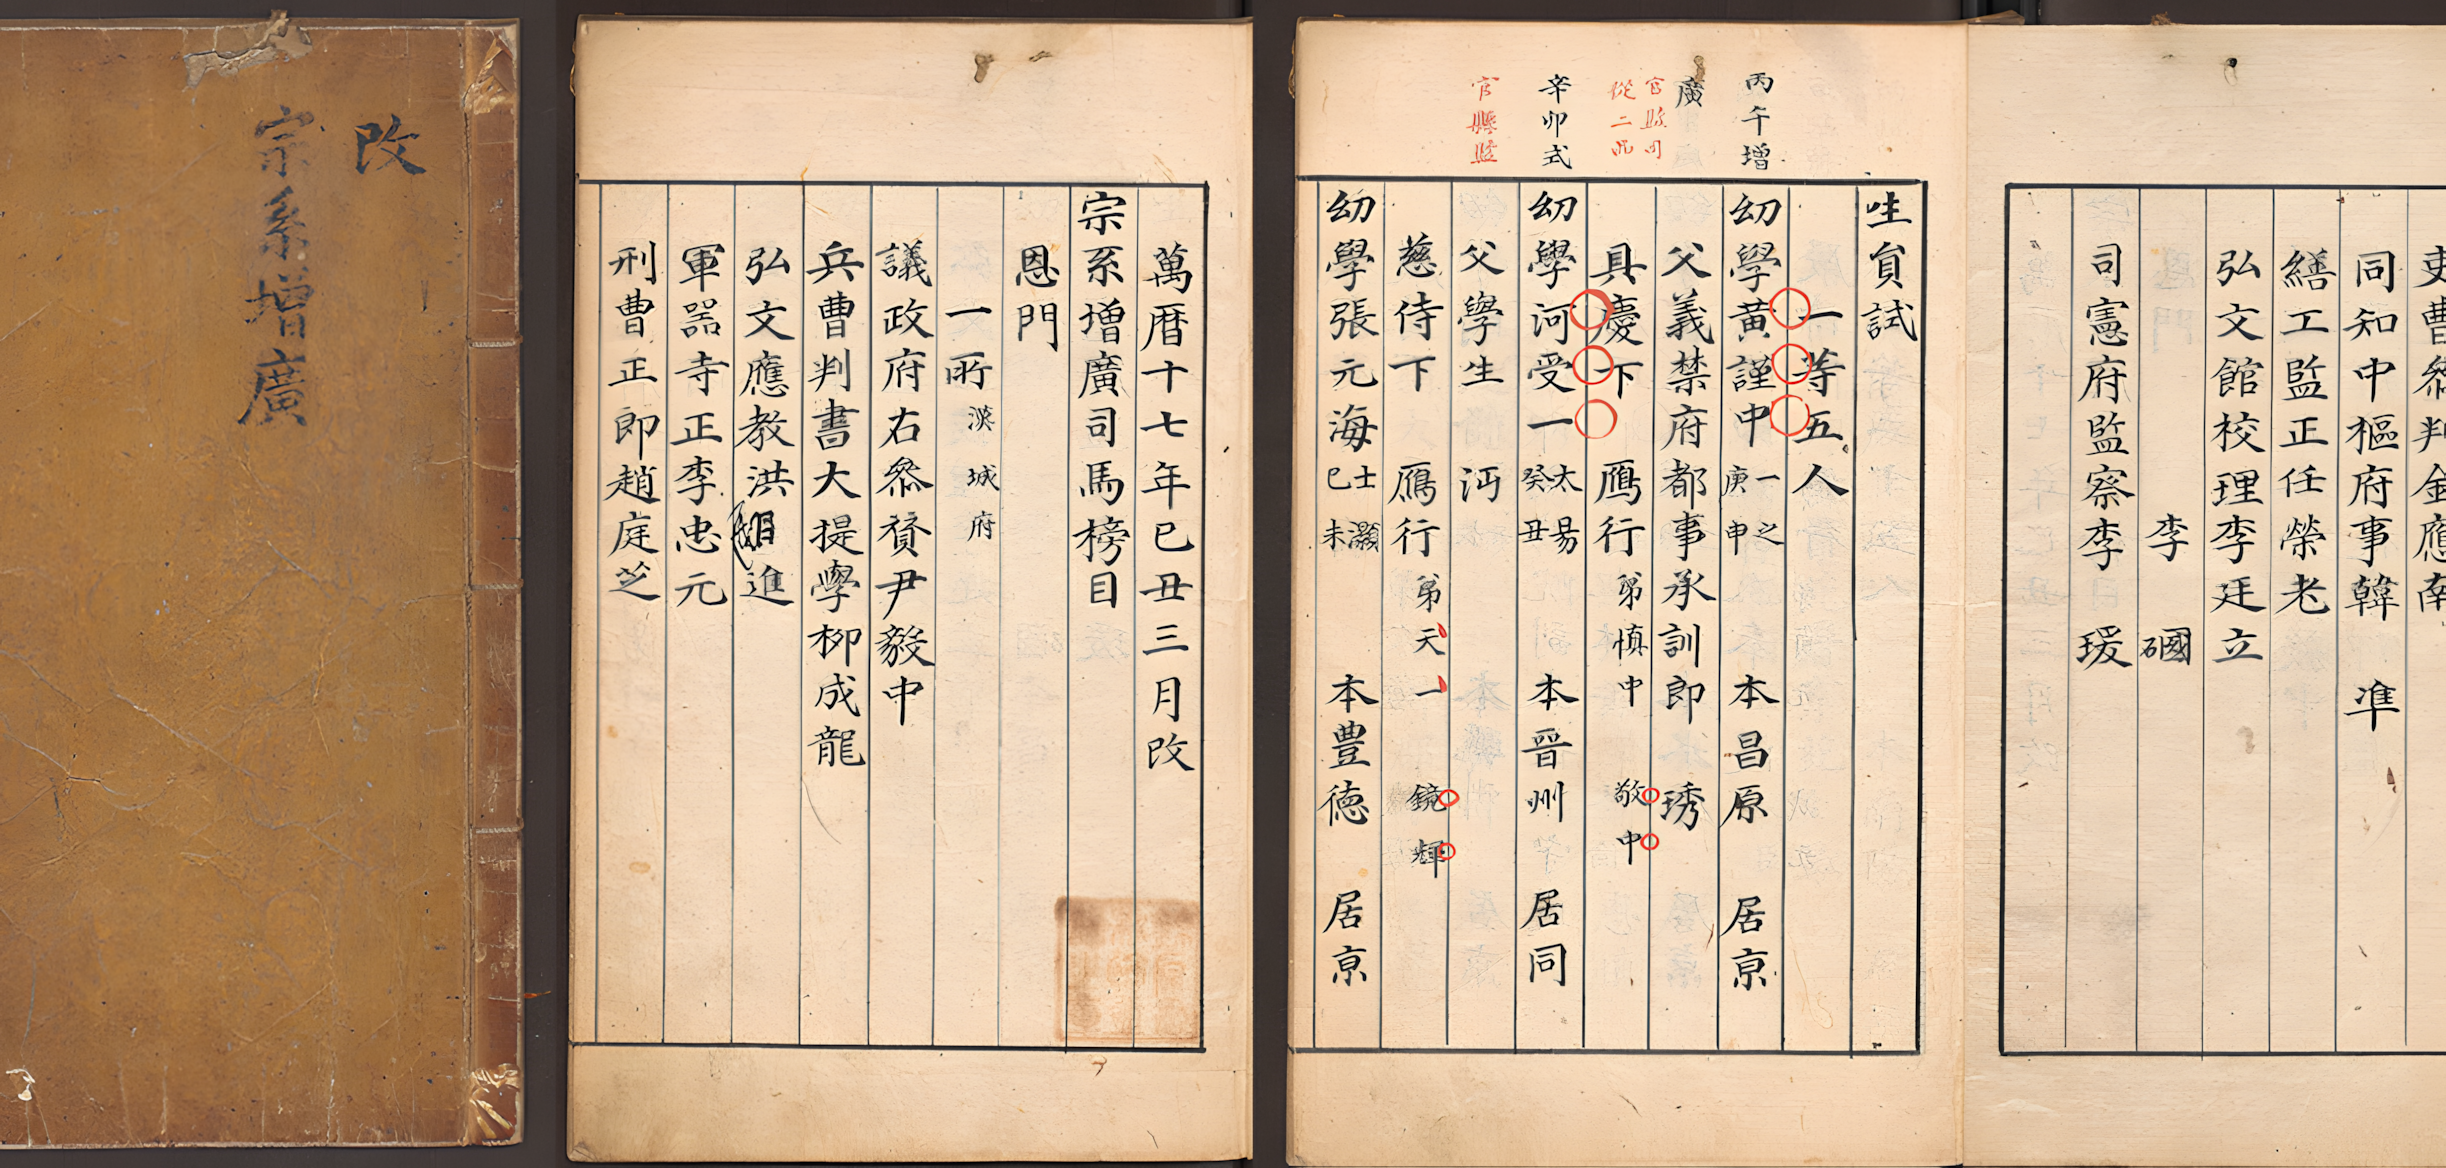 改
宗系增廣
萬曆十七年巳丑三月改
宗系增廣司馬榜目
恩門
一所 漢城府
議政府右叅贊尹毅中
兵曹判書大提學柳成龍
弘文應教洪 進
軍器寺正李忠元
刑曹正郎趙庭芝
吏曹叅判金應南
同知中樞府事韓 準
繕工監正任榮老
弘文館校理李廷立
李 國
司憲府監察李 瑗
丙午增
廣
從二品
辛卯式
官縣監
生員試
一等五人
幼學黃謹中 一之 庚申 本昌原 居京
父義禁府都事承訓郎 琇
具慶下 鴈行 弟慎中 敬中
幼學河受一 太易 癸丑 本晉州 居同
父學生 沔
慈侍下 鴈行 弟天一 鏡輝
幼學張元海 士灝 巳未 本豊德 居京